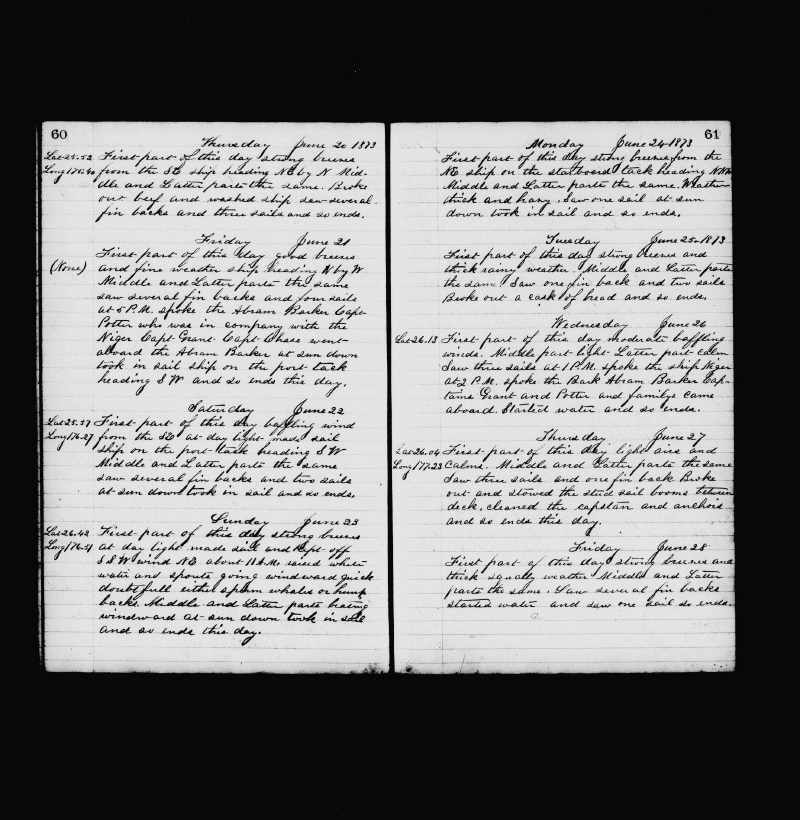 60
Thursday June 20 1873
Lat 25.52 First part of this day strong breeses
Long 176.40 from the SE ship heading NE by N Mid-
dle and Latter parts the same. Broke
out beef and washed ship saw several
fin backs and three sails and so ends.
Friday June 21
First part of this day good breeses
(None) and fine weather ship heading W by W
Middle and Latter parts the same
saw several fin backs and four sails
at 5 P.M. spoke the Abram Barker Capt
Potter who was in company with the
Niger Capt Grant Capt Chase went
aboard the Abram Barker at sun down
took in sail ship on the port tack
heading S W and so ends this day.
Saturday June 22
Lat 25.57 First part of this day baffling wind
Long 176.27 from the SE at day light made sail
ship on the port tack heading S W
Middle and Latter parts the same
saw several fin backs and two sails
at sun down took in sail and so ends.
Sunday June 23
Lat 26.42 First part of this day strong breeses
Long 176.51 at day light made sail and kept off
S S W wind N E about 11 A.M. raised white
water and spouts going windward quick
doubtfull either sperm whales or hump
backs. Middle and Latter parts beating
windward at sun down took in sail
and so ends this day.
61
Monday June 24 1873
First part of this day strong breeses from the
NE ship on the starboard tack heading NNW
Middle and Latter parts the same. Weather
thick and hazy. Saw one sail at sun
down took in sail and so ends.
Tuesday June 25 1873
First part of this day strong breeses and
thick rainy weather. Middle and Latter parts
the same. Saw one fin back and two sails
Broke out a cask of bread and so ends.
Wednesday June 26
Lat 26.13 First part of this day moderate baffling
winds. Middle part light Latter part calm
Saw three sails at 1 P.M. spoke the ship Niger
at 2 P.M. spoke the Bark Abram Barker Cap-
tains Grant and Potter and familys came
aboard. Started water and so ends.
Thursday June 27
Lat 26.04 First part of this day light airs and
Long 177.23 calms. Middle and Latter parts the same
Saw three sails and one fin back Broke
out and stowed the stud sail booms between
deck, cleaned the capstan and anchors
and so ends this day.
Friday June 28
First part of this day strong breeses and
thick squally weather Middle and Latter
parts the same. Saw several fin backs
started water and saw one sail so ends.